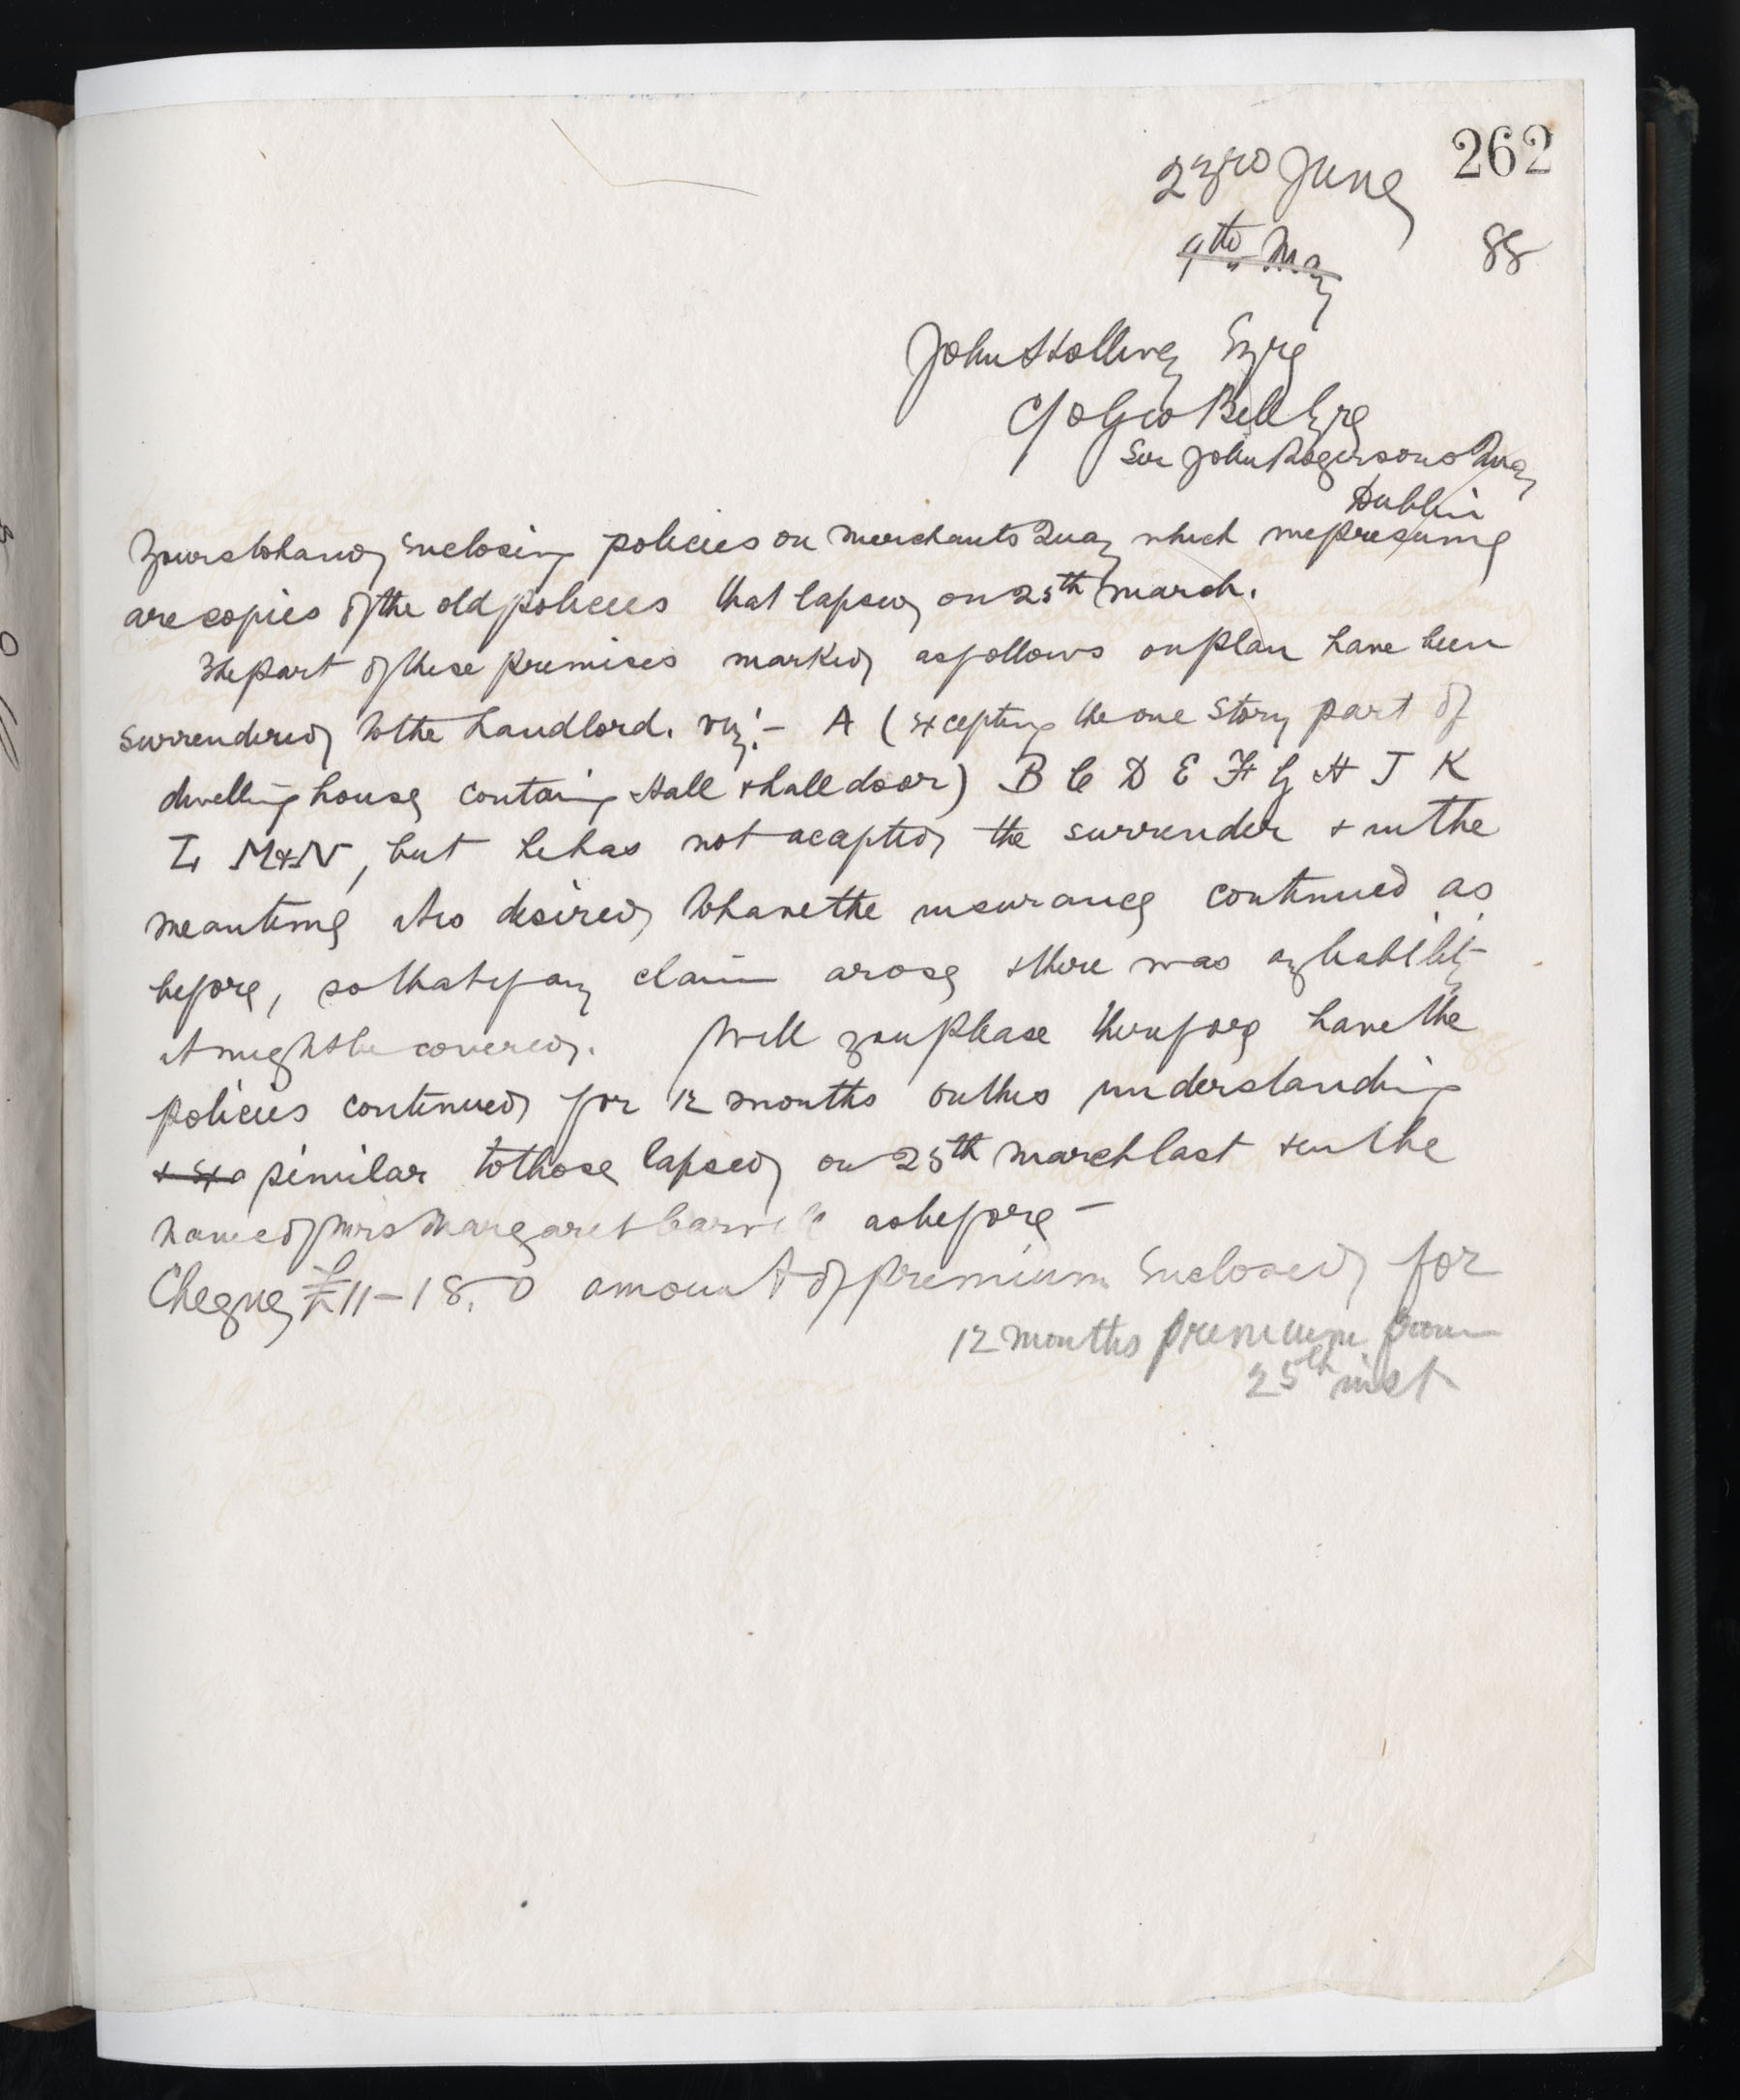 262
23rd June
9th May 88
John Hollwey Esqre
C/o Geo Bell Esqre
Sir John Rogersons Quay
Dublin
Yours to hand enclosing policies on Merchants Quay which we presume
are copies of the old policies that lapsed on 25th March.
The part of these premises marked as follows on plan have been
surrendered to the Landlord. viz:- A (excepting the one story part of
dwelling house containg Hall & hall door) B C D E F G H J K
L M & N, but he has not acapted the surrender & in the
meantime it is desired to have the insurance continued as
before, so that if any claim arose & there was any liability
it might be covered. Will you please therefore have the
policies continued for 12 months on this understanding
& similar to those lapsed on 25th March last & in the
name of Mrs Margaret as before -
Cheque £11-18.0 amount of premium enclosed for
12 months premium from
25th inst